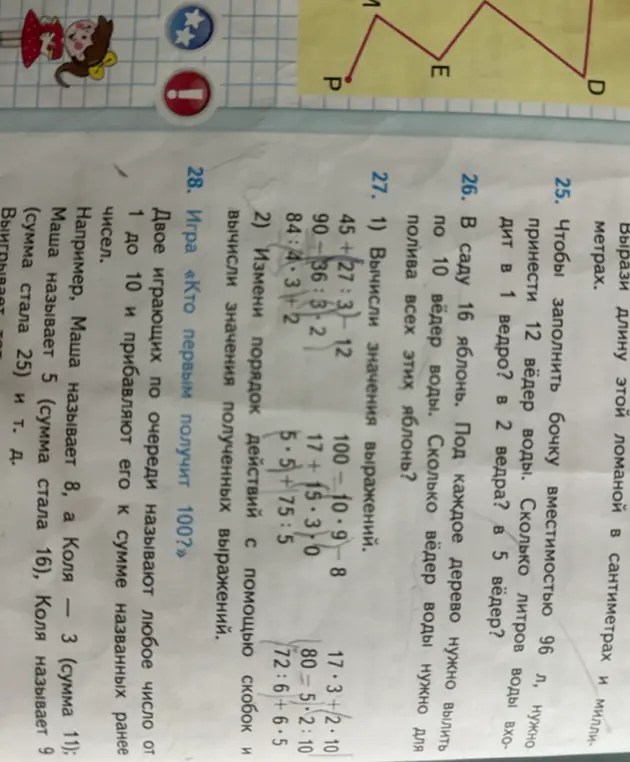 М
E
D
P
Вырази длину этой ломаной в сантиметрах и милли-
метрах.
25. Чтобы заполнить бочку вместимостью 96 л, нужно
принести 12 вёдер воды. Сколько литров воды вхо-
дит в 1 ведро? в 2 ведра? в 5 вёдер?
26. В саду 16 яблонь. Под каждое дерево нужно вылить
по 10 вёдер воды. Сколько вёдер воды нужно для
полива всех этих яблонь?
27. 1) Вычисли значения выражений.
45 + (27 : 3) − 12 100 − (10 · 9) − 8 17 · 3 + (2 · 10)
90 − (36 : 3 · 2) 17 + (5 · 3) · 0 80 − 5 · 2 : 10
84 : (4 · 3) + 2 5 · 5) + 75 : 5 (72 : 6) + 6 · 5
2) Измени порядок действий с помощью скобок и
вычисли значения полученных выражений.
28. Игра «Кто первым получит 100?»
Двое играющих по очереди называют любое число от
1 до 10 и прибавляют его к сумме названных ранее
чисел.
Например, Маша называет 8, а Коля — 3 (сумма 11);
Маша называет 5 (сумма стала 16), Коля называет 9
(сумма стала 25) и т. д.
Выигрывает тот